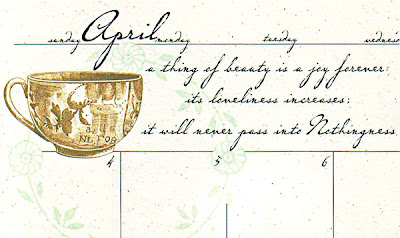 April
sunday monday tuesday wednes
a thing of beauty is a joy forever:
its loveliness increases;
it will never pass into Nothingness
4 5 6